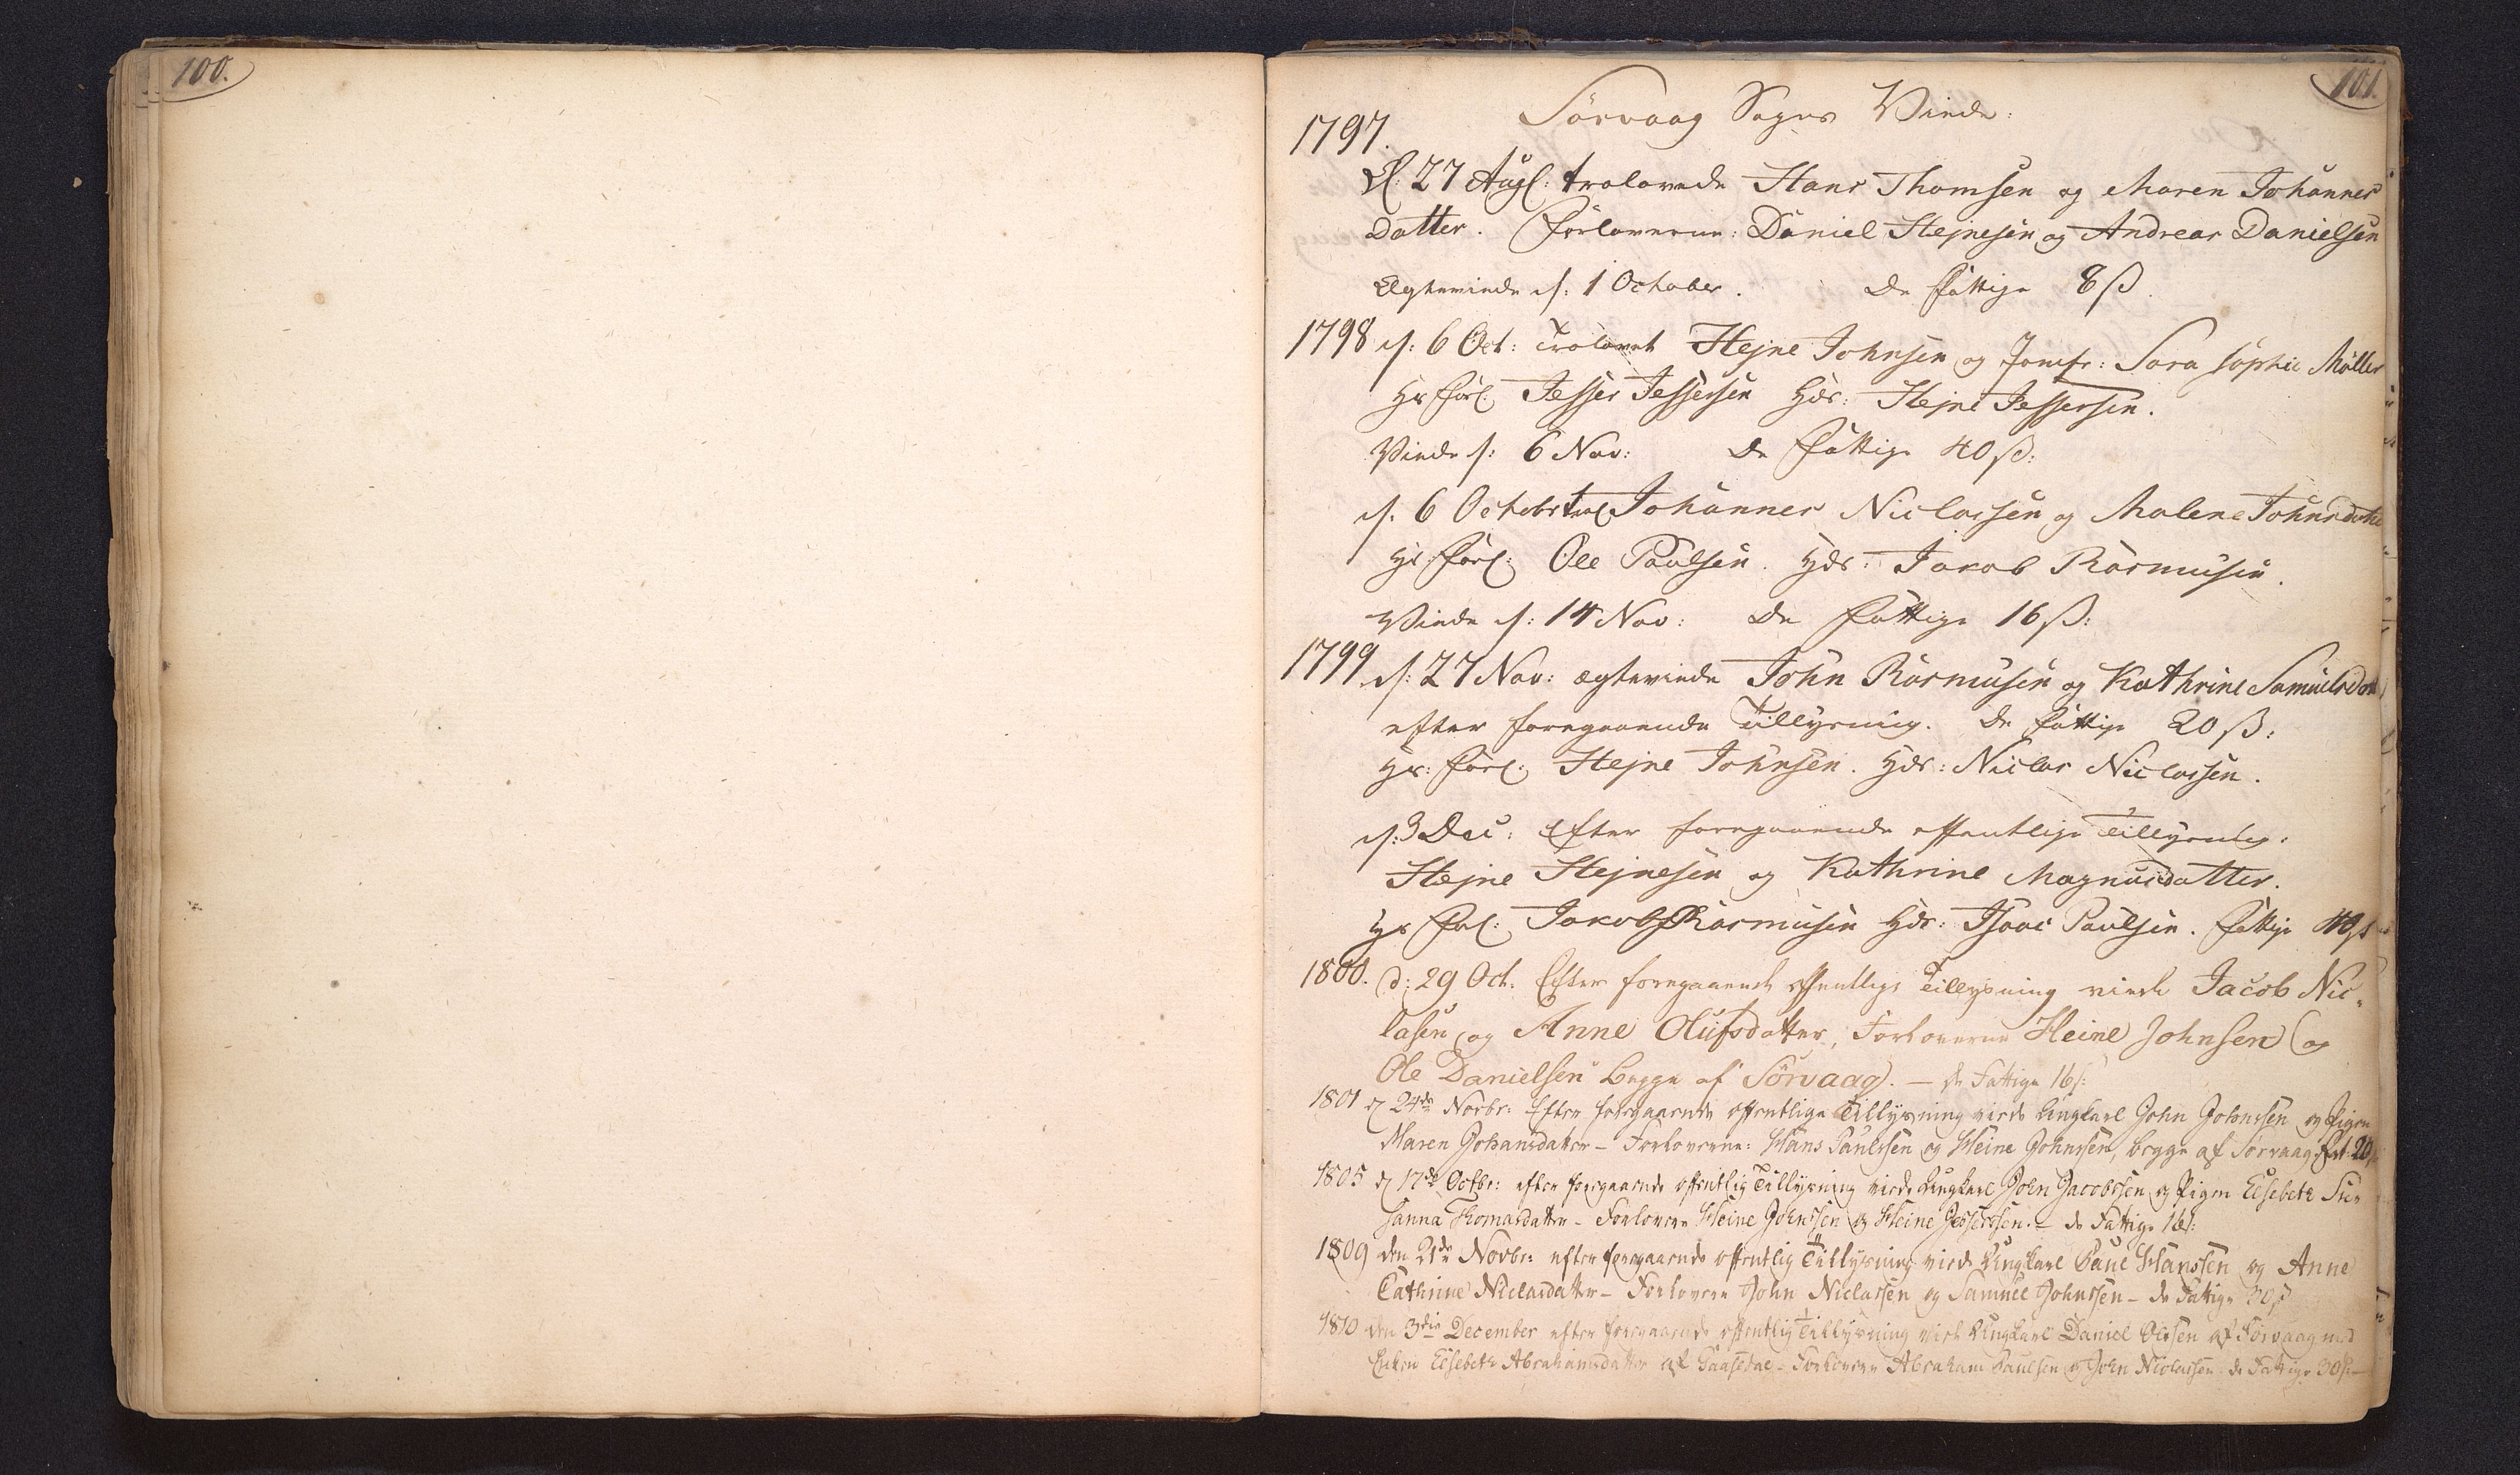 100.
101.
Sörvaag Sogns Viede:
1797.
d: 27 Aug: trolovede Hans Thomsen og Maren Johannes
Datter. Forloverne: Daniel Hejnesen og Andreas Danielsen
Ægteviede d: 1 October. De Fattige 8 ß.
1798 d: 6 Oct: Trolovet Hejne Johnsen og Jomfr: Sara Sophie Møller
Hs Forl: Jesper Jespersen Hds: Hejne Jespersen.
Viede d: 6 Nov: De Fattige 40 ß:
d: 6 Octobr trol: Johannes Niclassen og Malene Johnsdatter
Hs Forl: Ole Paulsen. Hds: Jakob Rasmusen.
Viede d: 14 Nov: De Fattige 16 ß:
1799 d: 27 Nov: ægteviede John Rasmusen og Kathrine Samuelsdatt
efter foregaaende Tillysning. De Fattige 20 ß:
Hs: Forl: Hejne Johnsen. Hds: Niclas Niclassen.
d: 3 Dec: Efter foregaaende offentlige Tillysning
Hejne Hejnesen og Kathrine Magnusdatter.
Hs Forl: Jakob Rasmusen Hds: Isaac Paulsen. Fattige 40 ß
1800. d: 29 Oct: Efter foregaaende offentlige Tillysning viede Jacob Nic-
lasen og Anne Olufsdatter, Forloverne Heine Johnsen og
Ole Danielsen begge af Sörvaag. — de Fattige 16 ß:
1801 d 24de Novbr: Efter foregaaende offentlige Tillysning viede Ungkarl John Johnssen og Pigen
Maren Johansdatter – Forloverne: Hans Paulssen og Heine Johnssen, begge af Sörvaag. Fat: 20 ß
1805 d 17de Octbr: efter foregaaende offentlig Tillysning viede Ungkarl John Jacobssen og Pigen Elsebeth Su-
sanna Thomasdatter – Forlovere Heine Johnssen og Heine Jesperssen. – de Fattige 16 ß:
1809 den 21de Novbr: efter foregaaende offentlig Tillysning viede Ungkarl Paul Hanssen og Anne
Cathrine Niclasdatter – Forlovere John Niclassen og Samuel Johnssen – de Fattige 30 ß
1810 den 3die December efter foregaaende offentlig Tillysning viede Ungkarl Daniel Olesen af Sörvaag med
Enken Elsebeth Abrahamsdatter af Gaasedal – Forlovere Abraham Paulsen og John Niclassen – de Fattige 30 ß –